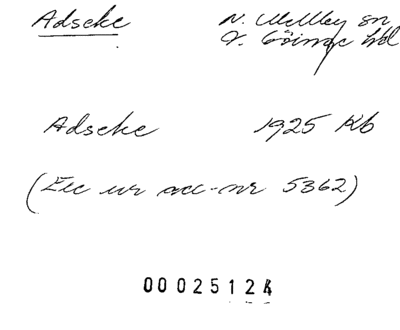 Adseke
N. Mellby sn
V. Göinge hd
Adseke 1925 Kb
(Ec ur acc-nr 5362)
00025124